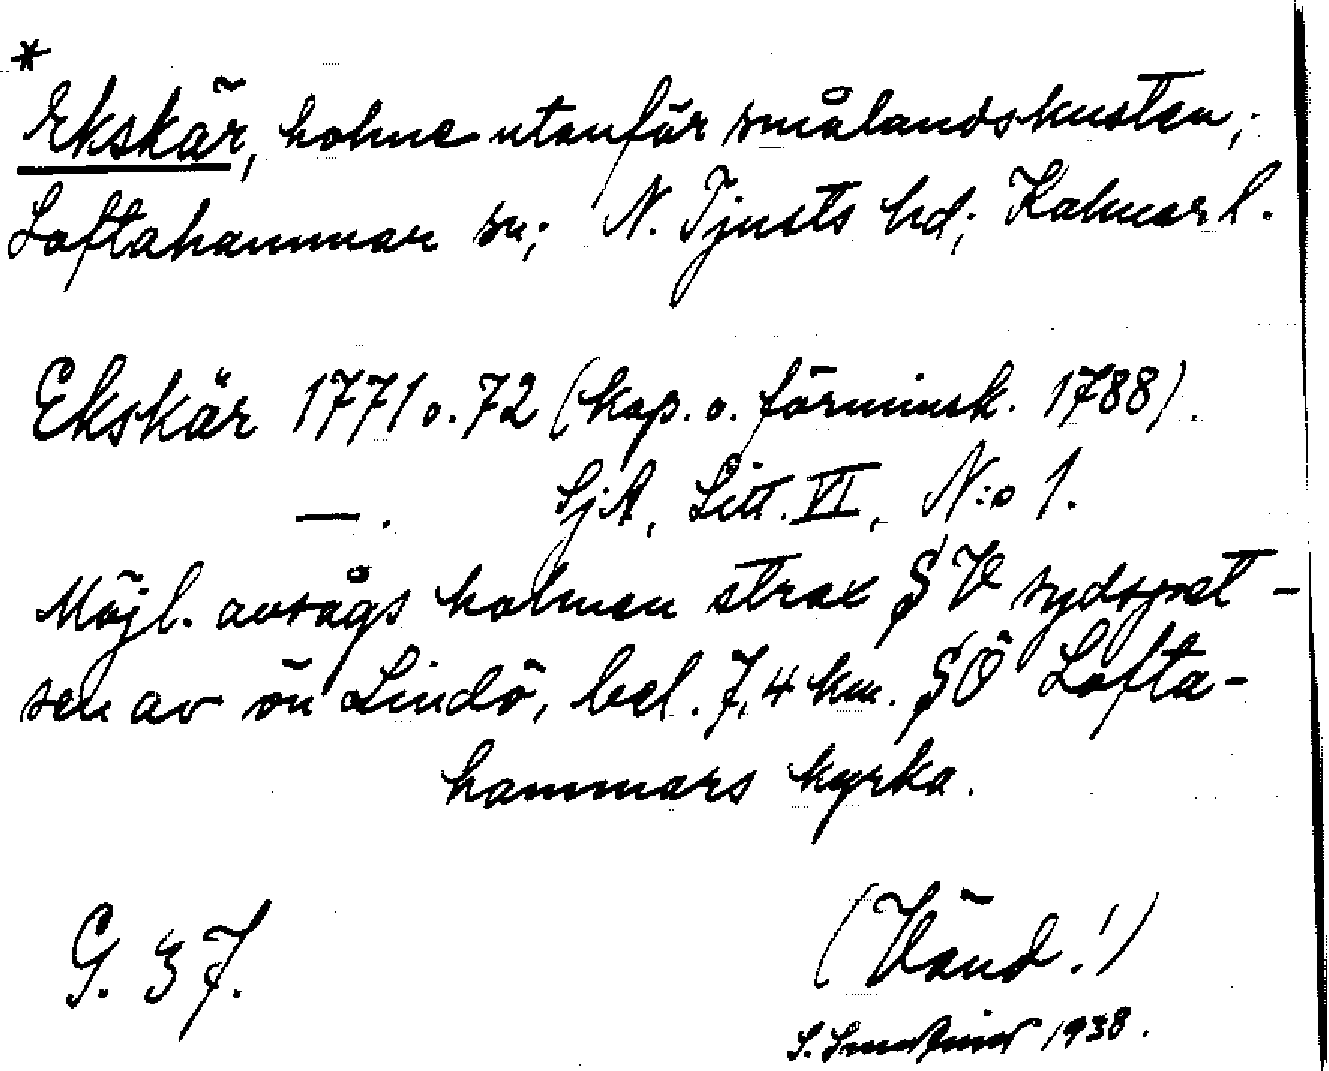 *
Ekskär, holme utanför smålandskusten;
Loftahammar sn; N. Tjusts hd; Kalmar l.
Ekskär 1771 o. 72 (kop. o. förminsk. 1788).
—. SjA, Litt. VI, N:o 1.
Möjl. avsågs holmen strax SV sydspet-
sen av ön Lindö, bel. 7,4 km. SÖ Lofta-
hammars kyrka.
G. 37. (Vänd!)
S. 1938.